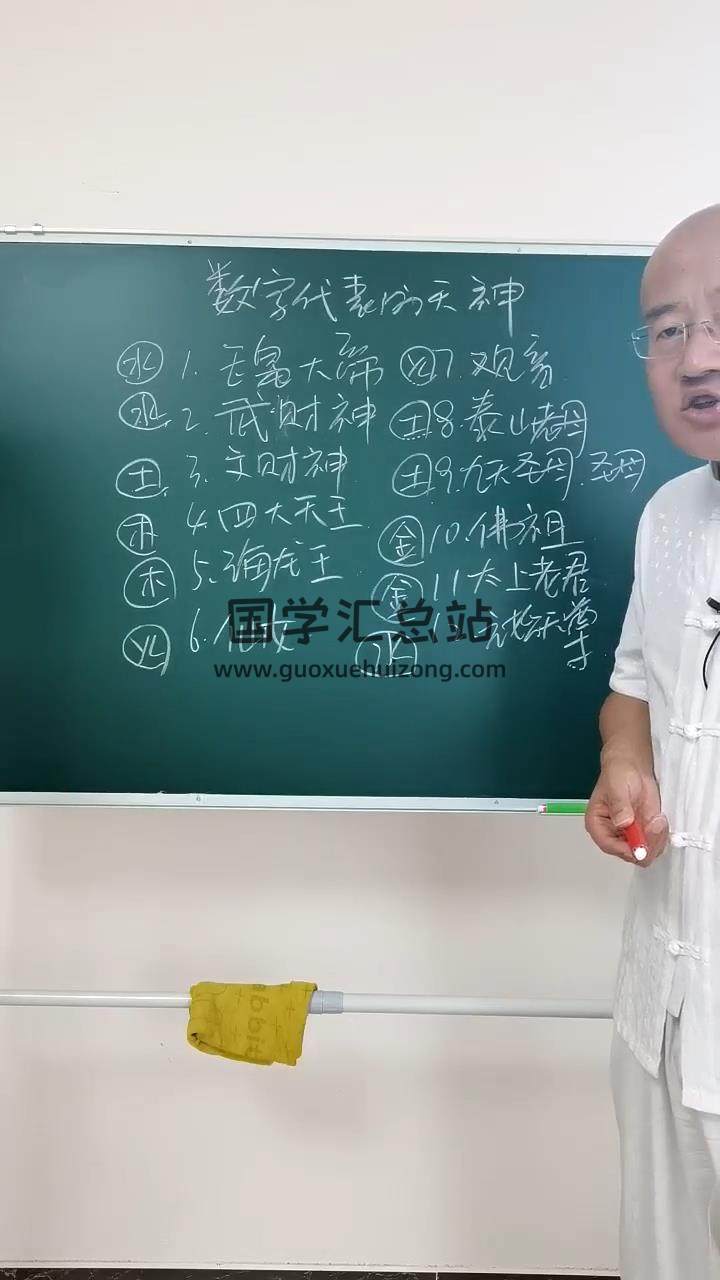 数字代表的天神
水 1. 玉皇大帝
水 2. 武财神
土 3. 文财神
木 4. 四大天王
木 5. 海龙王
火 6.
火 7. 观音
土 8. 泰山老母
土 9. 九天圣母. 圣母
金 10. 佛祖
金 11 太上老君
水 12 元始天尊
国学汇总站
www.guoxuehuizong.com
abbit